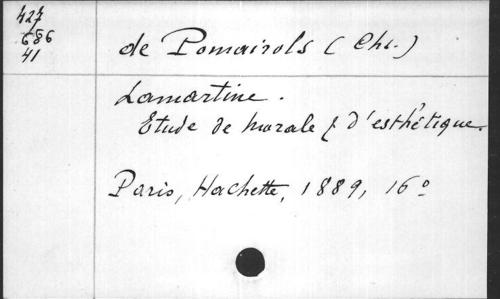 427
686
41
de Pomairols (Ch.)
Lamartine.
Etude de morale & d'esthétique.
Paris, Hachette, 1889, 16°